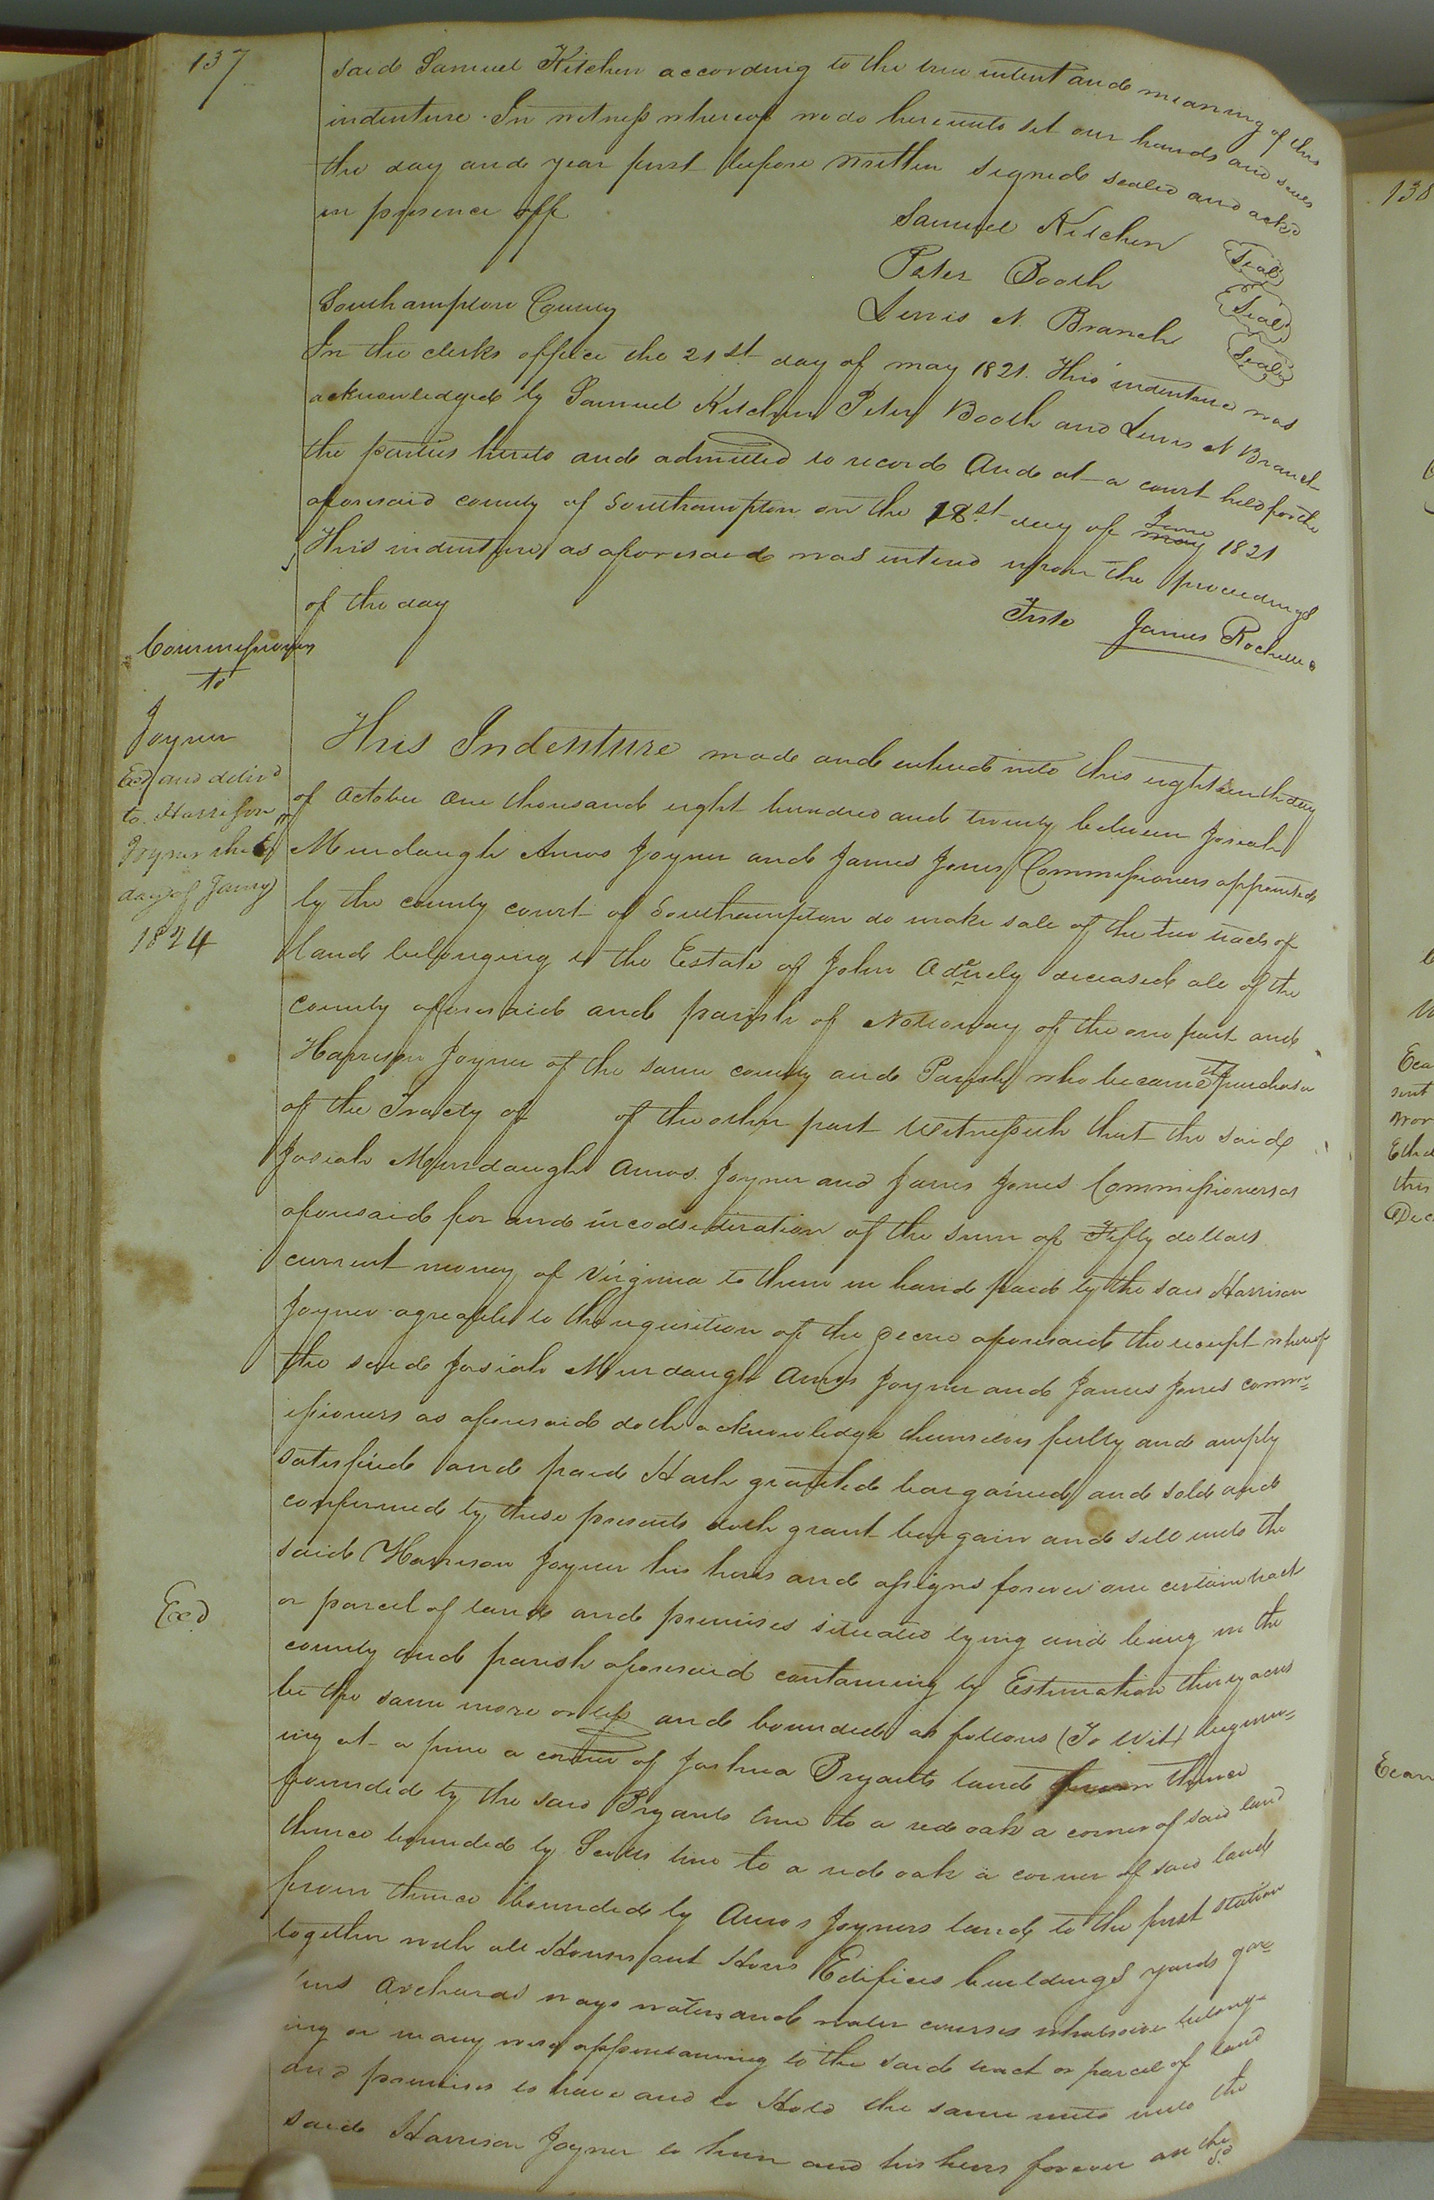 137
said Samuel Kitchen according to the true intent and meaning of this
indenture. In witness whereof we do hereunto set our hands and seals
the day and year first before written signed sealed and ackd
in presence off
Samuel Kitchen Seal
Peter Booth Seal
Lewis N. Branch Seal
Southampton County
In the clerks office the 21st day of may 1821. This indenture was
acknowledged by Samuel Kitchen Peter Booth and Lewis N Branch
the parties hereto and admitted to record And at a court held for the
aforesaid county of Southampton on the 18st day of may June 1821
This indenture as aforesaid was entered upon the proceedings
of the day
Teste James Rochelle
Commissioners
to
Joyner
Exd and delivd
to Harrison
Joyner the
day of Jany
1824
This Indenture made and entered into this eighteenth day
of October One thousand eight hundred and twenty between Josiah
Murdaugh Amos Joyner and James Jones Commissioners appointed
by the county court of Southampton do make sale of the two tracts of
land belonging to the Estate of John deceased all of the
county aforesaid and parish of Nottoway of the one part and
Harrison Joyner of the same county and Parish who became the purchaser
of the Tracty of of the other part Witnesseth that the said
Josiah Murdaugh Amos Joyner and James Jones Commissioners as
aforesaid for and in consideration of the sum of Fifty dollars
current money of Virginia to them in hand paid by the said Harrison
Joyner agreable to the requisition of the decree aforesaid the receipt whereof
the said Josiah Murdaugh Amos Joyner and James Jones comm=
issioners as aforesaid doth acknowledge themselves fully and amply
satisfied and paid Hath granted bargained and sold and
confirmed by these presents doth grant bargain and sell unto the
said Harrison Joyner his heirs and assigns forever one certain tract
Exd
or parcel of land and premises situated lying and being in the
county and parish aforesaid containing by Estimation thirty acres
be the same more or less and bounded as follows (To Wit) beginn=
ing at a pine a corner of Joshua Bryants land from thence
bounded by the said Bryants line to a red oak a corner of said land
thence bounded by line to a red oak a corner of said land
from thence bounded by Amos Joyners land to the first station
together with all Houses out Hous Edifices buildings yards gar=
dens Archards ways waters and water courses whatsoever belong=
ing or in any wise appertaining to the said tract or parcel of land
and premises to have and to Hold the same unto unto the
said Harrison Joyner to him and his heirs forever an the sd
138